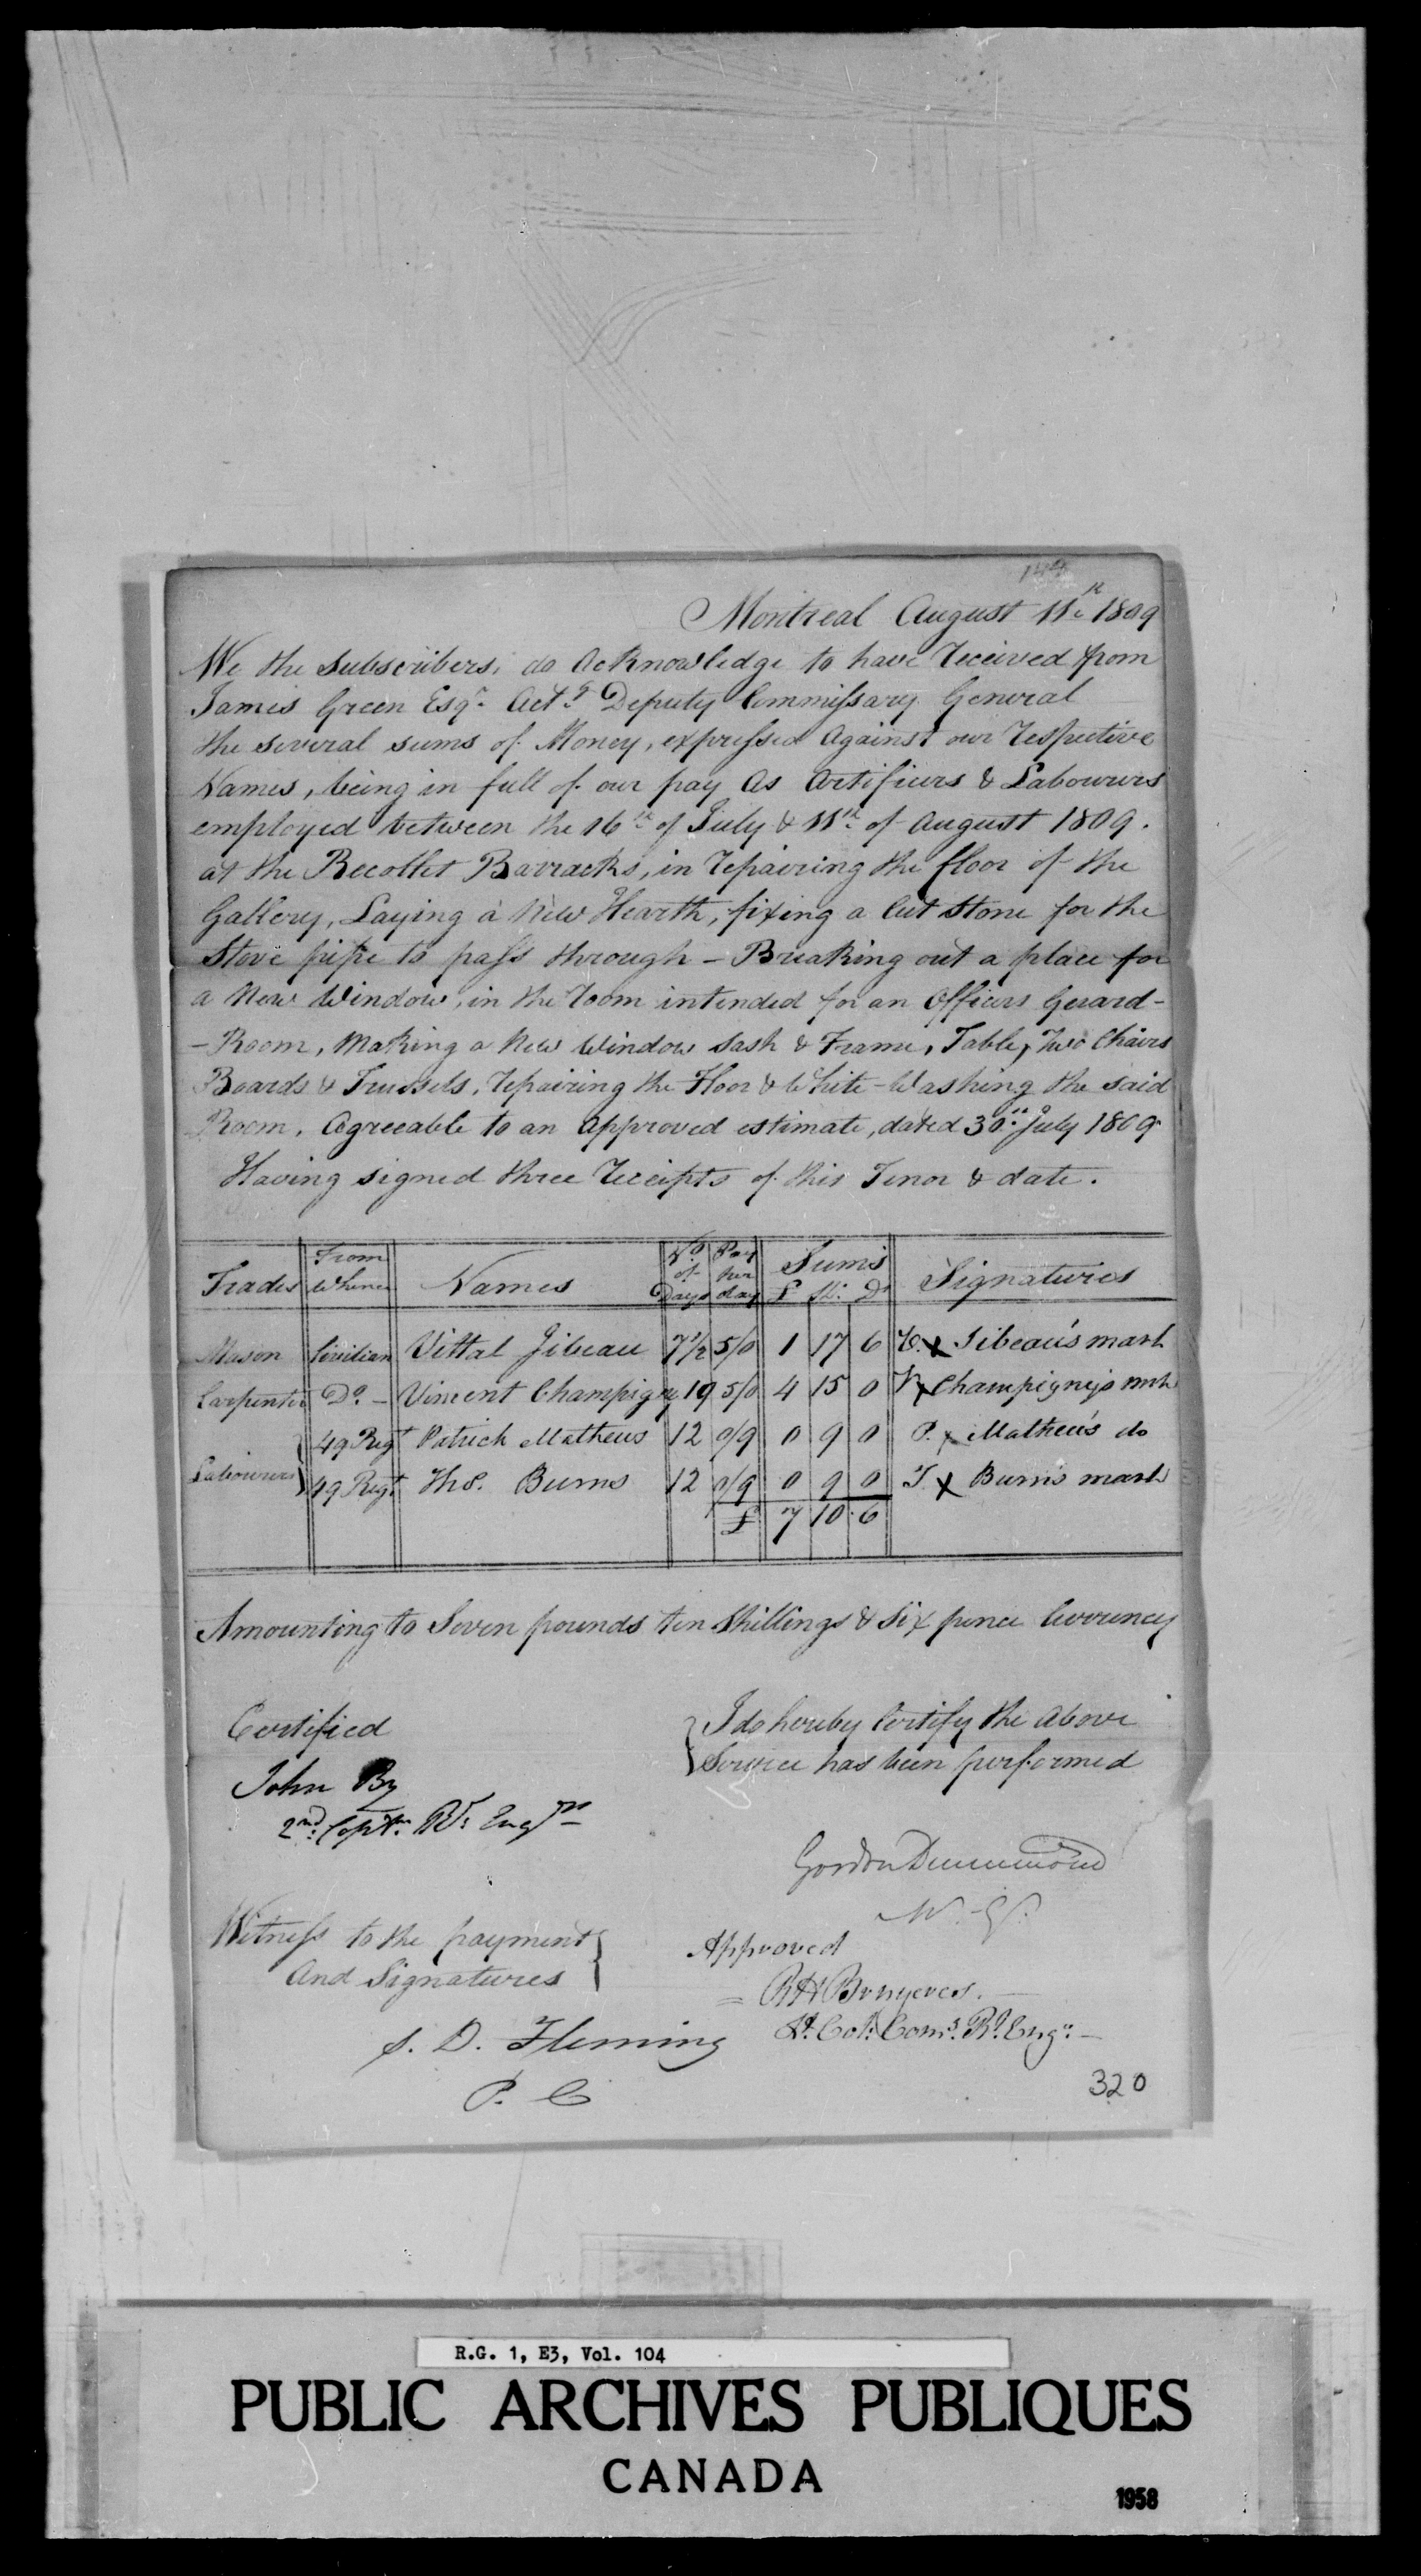 144
Montreal August 11th 1809
We the Subscribers, do Acknowledge to have Received from
James Green Esqr. Actg. Deputy Commissary General
the several sums of Money, expressed Against our Respective
Names, being in full of our pay As Artificers & Labourers
employed between the 16th of July & 11th of August 1809.
at the Recollet Barracks, in Repairing the floor of the
Gallery, Laying a New Hearth, fixing a Cut Stone for the
Stove pipe to pass through – Breaking out a place for
a New Window, in the Room intended for an Officers Guard-
-Room, Making a New Window Sash & Frame, Table, Two Chairs
Boards & Trussels, Repairing the Floor & White-Washing the said
Room, Agreeable to an Approved estimate, dated 30th July 1809
Having signed three Receipts of this Tenor & date.
Trades From Whence Names No. of Days Pay per day Sums £ Sh: D. Signatures
Mason Civilian Vittal Jibeau 7½ 5/0 1 17 6 V. x Jibeau's mark
Carpenter Do. – Vincent Champigny 19 5/0 4 15 0 V x Champigny's mrk
Labourers 49 Regt Patrick Matheus 12 0/9 0 9 0 P. x Matheu's do
49 Regt Thos. Burns 12 0/9 0 9 0 T x Burns mark
£ 7 10 6
Amounting to Seven pounds ten Shillings & Six pence Currency
Certified
John By
2nd. Captn. Rl. Engrs
I do hereby Certify the above
Service has been performed
Gordon Drummond
M. G.
Witness to the payment
And Signatures
S. D. Fleming
P. C
Approved
RH Bruyeres.
Lt. Col. Comg. Rl. Engrs. –
320
R.G. 1, E3, Vol. 104
PUBLIC ARCHIVES PUBLIQUES
CANADA
1958